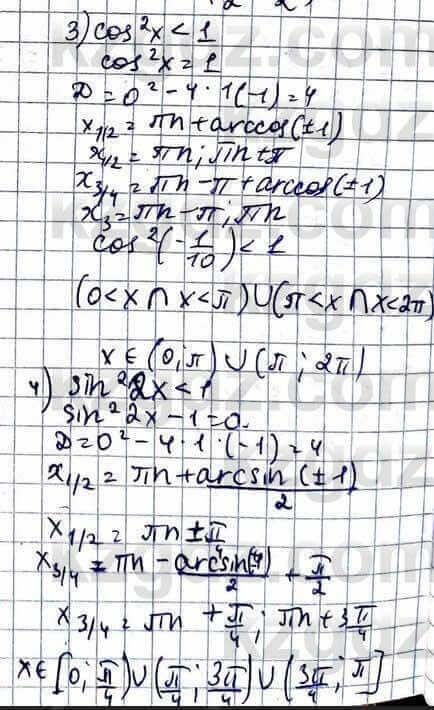 3) cos²x < 1
cos²x = 1
D = 0² - 4 · 1(-1) = 4
x₁/₂ = πn + arccos(±1)
x₁/₂ = πn; πn ± π
x₃/₄ = πn - π + arccos(±1)
x₃ = πn - π; πn
cos²(-1/10) < 1
(0 < x ∩ x < π) ∪ (π < x ∩ x < 2π)
x ∈ (0; π) ∪ (π; 2π)
4) sin²2x < 1
sin²2x - 1 = 0.
D = 0² - 4 · 1 · (-1) = 4
x₁/₂ = πn + arcsin(±1)/2
x₁/₂ = πn ± π/4
x₃/₄ = πn - arcsin()/2 + π/2
x₃/₄ = πn + π/4; πn + 3π/4
x ∈ [0; π/4) ∪ (π/4; 3π/4) ∪ (3π/4; π]